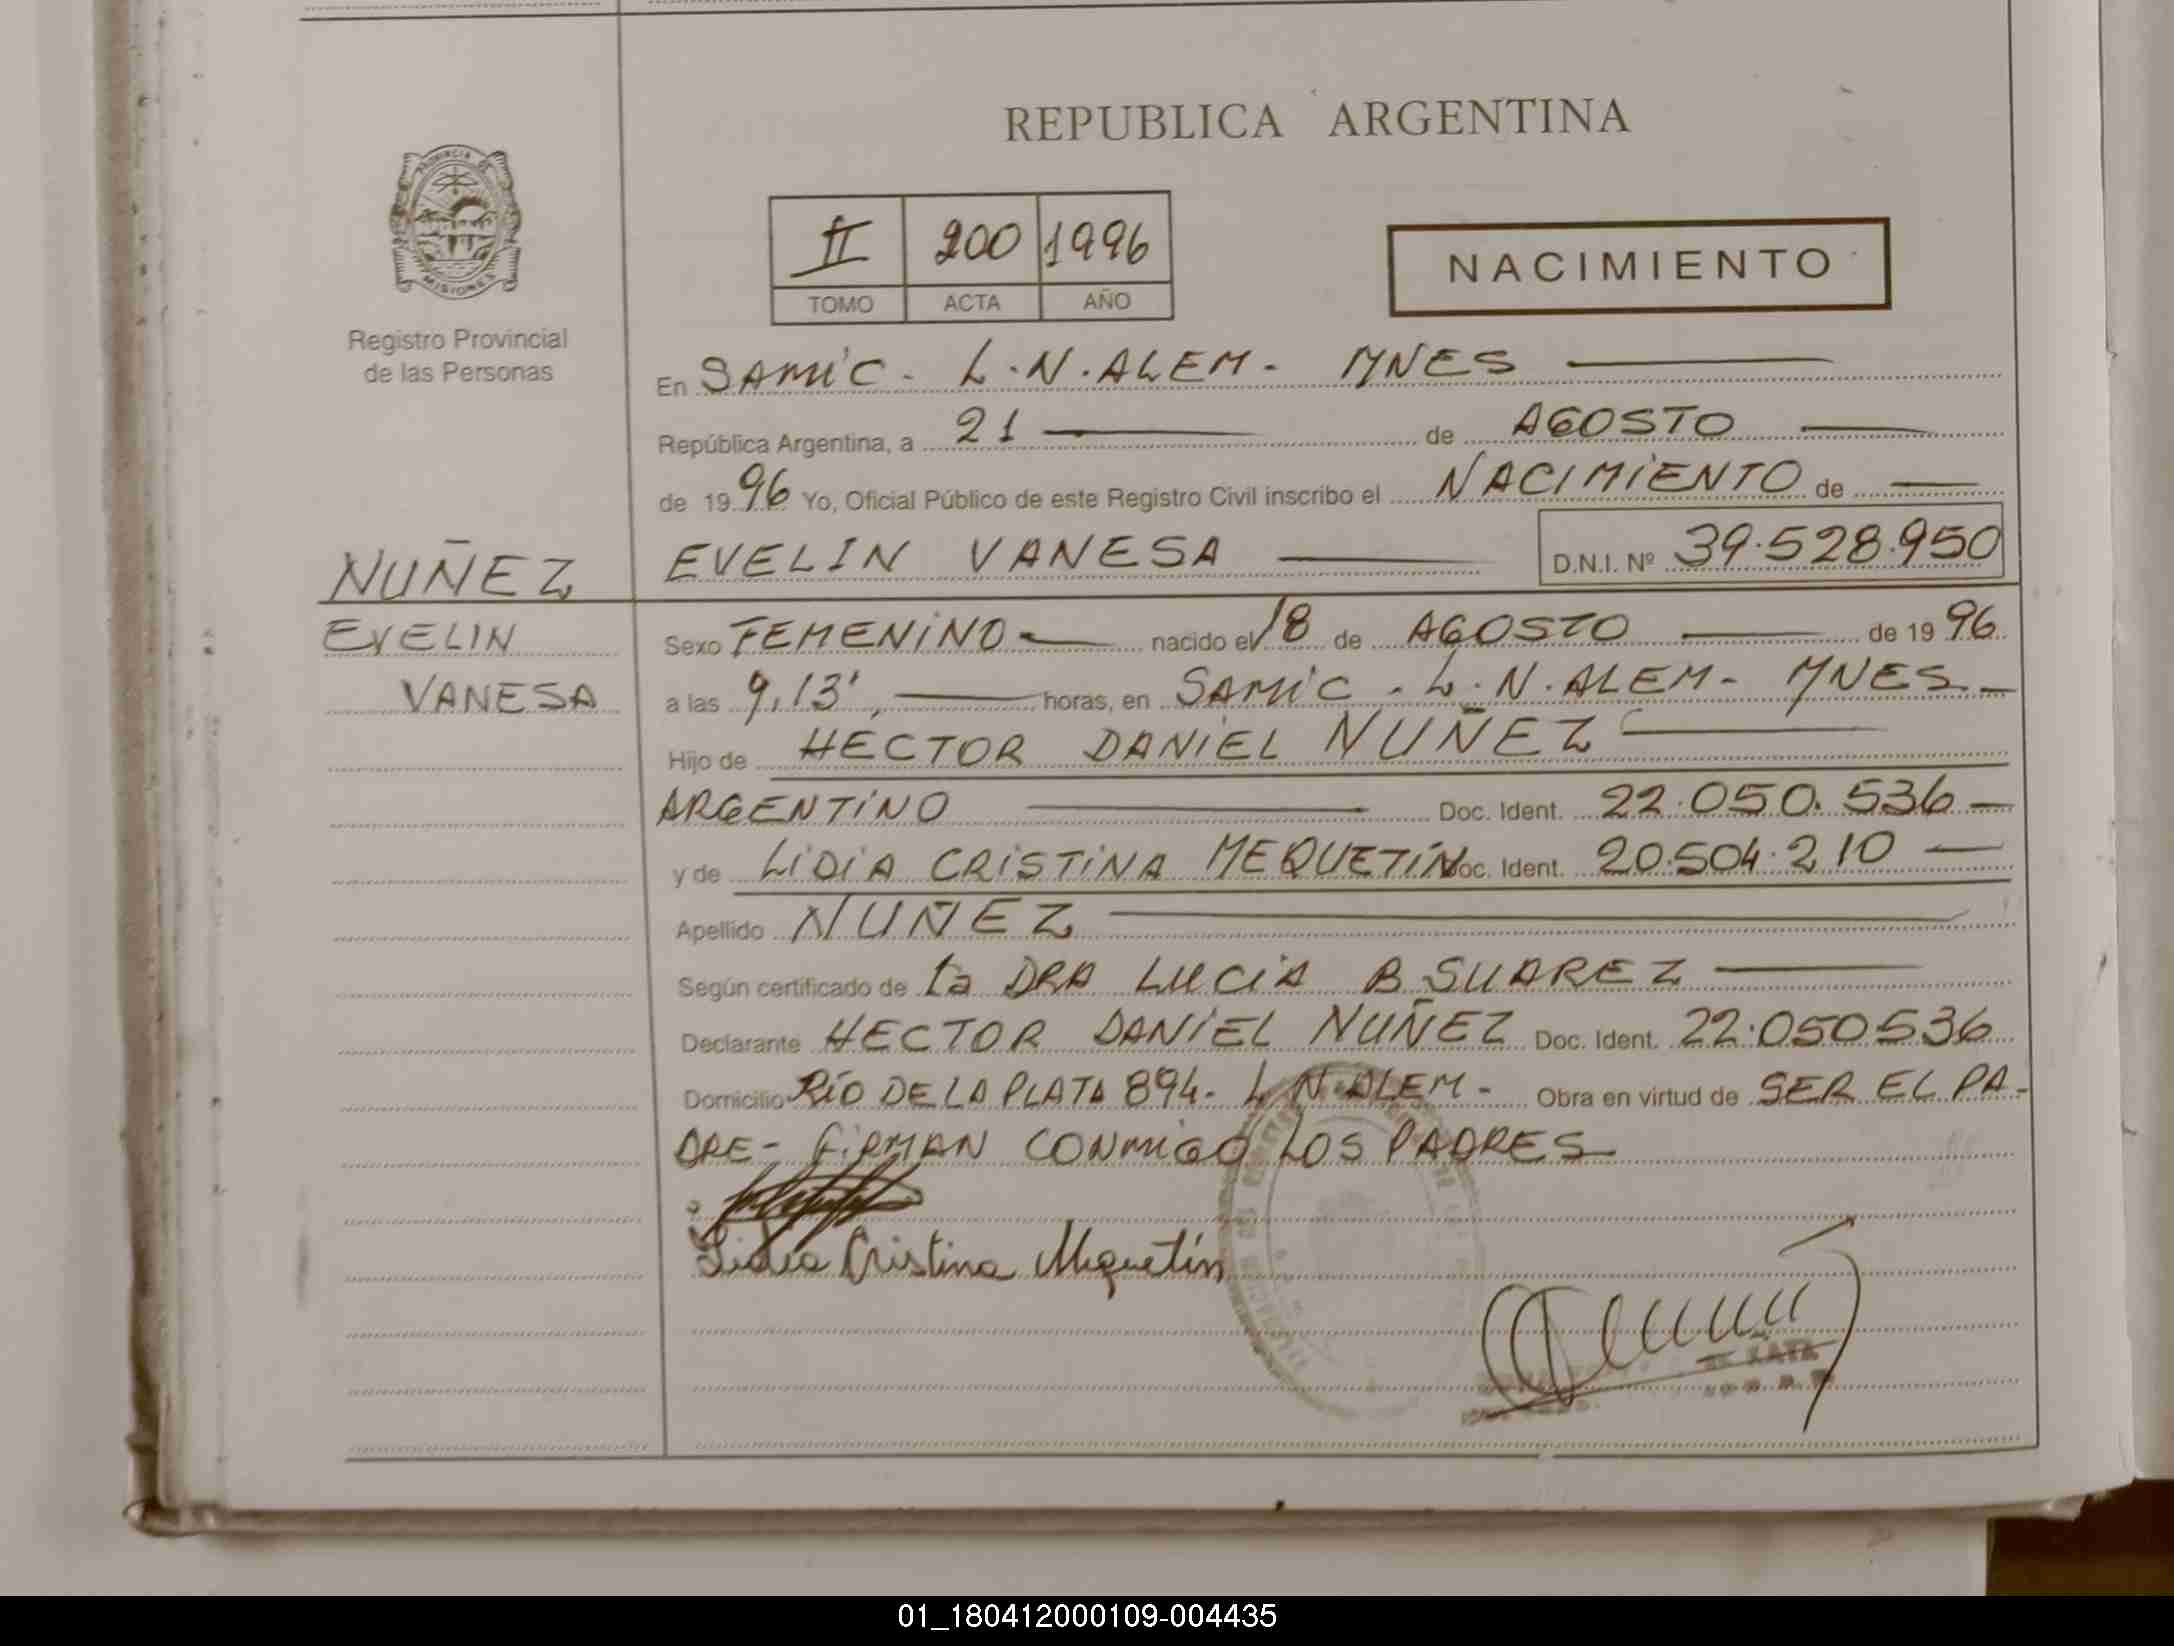 REPUBLICA ARGENTINA
PROVINCIA DE MISIONES
Registro Provincial
de las Personas
II 200 1996
TOMO ACTA AÑO
NACIMIENTO
En SAMIC - L.N.ALEM - MNES
República Argentina, a 21 de AGOSTO
de 1996 Yo, Oficial Público de este Registro Civil inscribo el NACIMIENTO de
NUÑEZ
EVELIN VANESA
EVELIN VANESA D.N.I. Nº 39.528.950
Sexo FEMENINO nacido el 18 de AGOSTO de 1996
a las 9,13', horas, en SAMIC - L.N.ALEM - MNES
Hijo de HECTOR DANIEL NUÑEZ
ARGENTINO Doc. Ident. 22.050.536
y de LIDIA CRISTINA MEQUETÍN Doc. Ident. 20.504.210
Apellido NUÑEZ
Según certificado de la DRA LUCIA B SUAREZ
Declarante HECTOR DANIEL NUÑEZ Doc. Ident. 22.050536
Domicilio RÍO DE LA PLATA 894 - L N ALEM - Obra en virtud de SER EL PA-
DRE - FIRMAN CONMIGO LOS PADRES
Lidia Cristina Mequetín
01_180412000109-004435